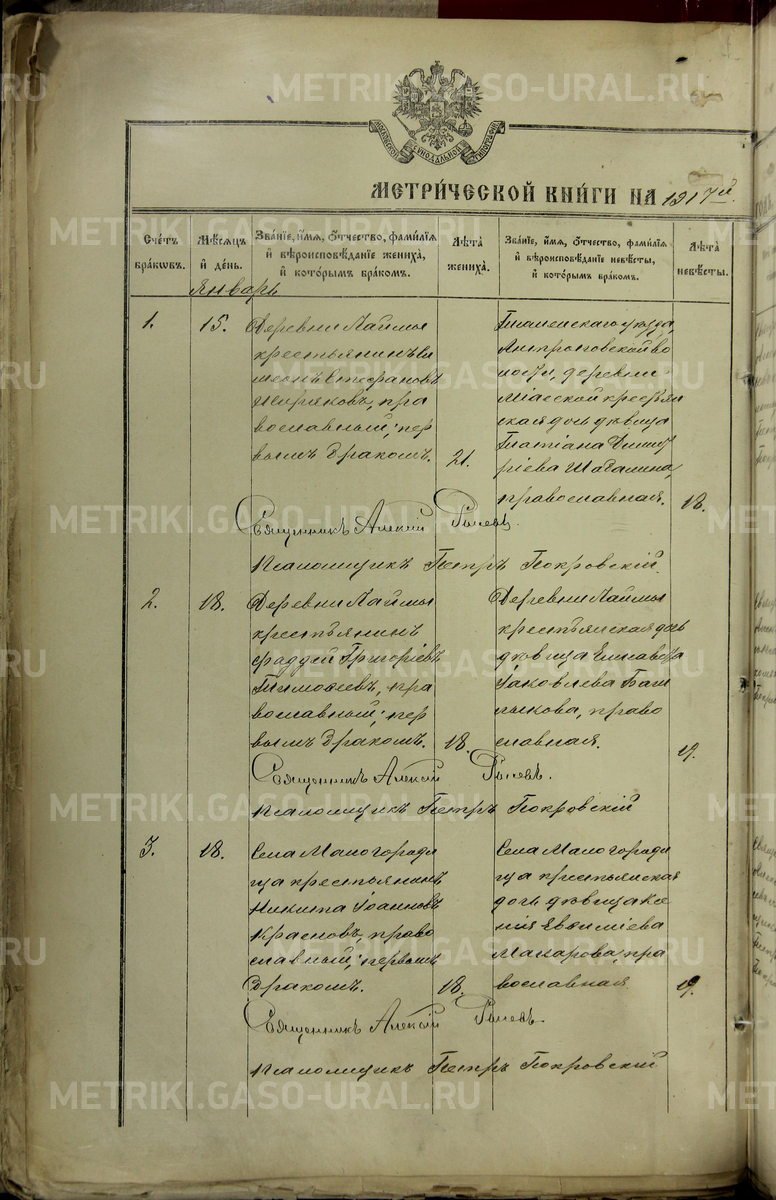 МОСКОВСКОЙ СѴНОДАЛЬНОЙ ТИПОГРАФІИ
МЕТРИ́ЧЕСКОЙ КНИ́ГИ НА 1917й.
Сче́тъ бра́ковъ.
Мѣ́сяцъ и́ де́нь.
Зва́ніе, и́мя, о́тчество, фами́лія и́ вѣроисповѣ́даніе жениха́, и́ кото́рымъ бра́комъ.
Лѣ́та жениха́.
Зва́ніе, и́мя, о́тчество, фами́лія и́ вѣроисповѣ́даніе невѣ́сты, и́ кото́рымъ бра́комъ.
Лѣ́та невѣ́сты.
Январь
1.
15.
Деревни Лаймы
крестьянинъ Си
меонъ Стефановъ
, пра
вославный, пер
вымъ бракомъ.
21.
уѣзда,
во
лости, деревни
крестьян
ская дочь дѣвица
Татіана Димит
ріева Шабалина,
православная.
18.
Священникъ Алексій
Псаломщикъ Петръ Покровскій
2.
18.
Деревни Лаймы
крестьянинъ
Фаддей Григоріевъ
Тимофеевъ, пра
вославный, пер
вымъ бракомъ.
18.
Деревни Лаймы
крестьянская дочь
дѣвица Елисавета
Іаковлева Баш
лыкова, право
славная.
19.
Священникъ Алексій
Псаломщикъ Петръ Покровскій
3.
18.
Села Малогороди
ща крестьянинъ
Никита Іоанновъ
Красновъ, право
славный, первымъ
бракомъ.
18.
Села Малогороди
ща крестьянская
дочь дѣвица Ксе
нія Евѳиміева
Макарова, пра
вославная
19.
Священникъ Алексій
Псаломщикъ Петръ Покровскій
METRIKI.GASO-URAL.RU